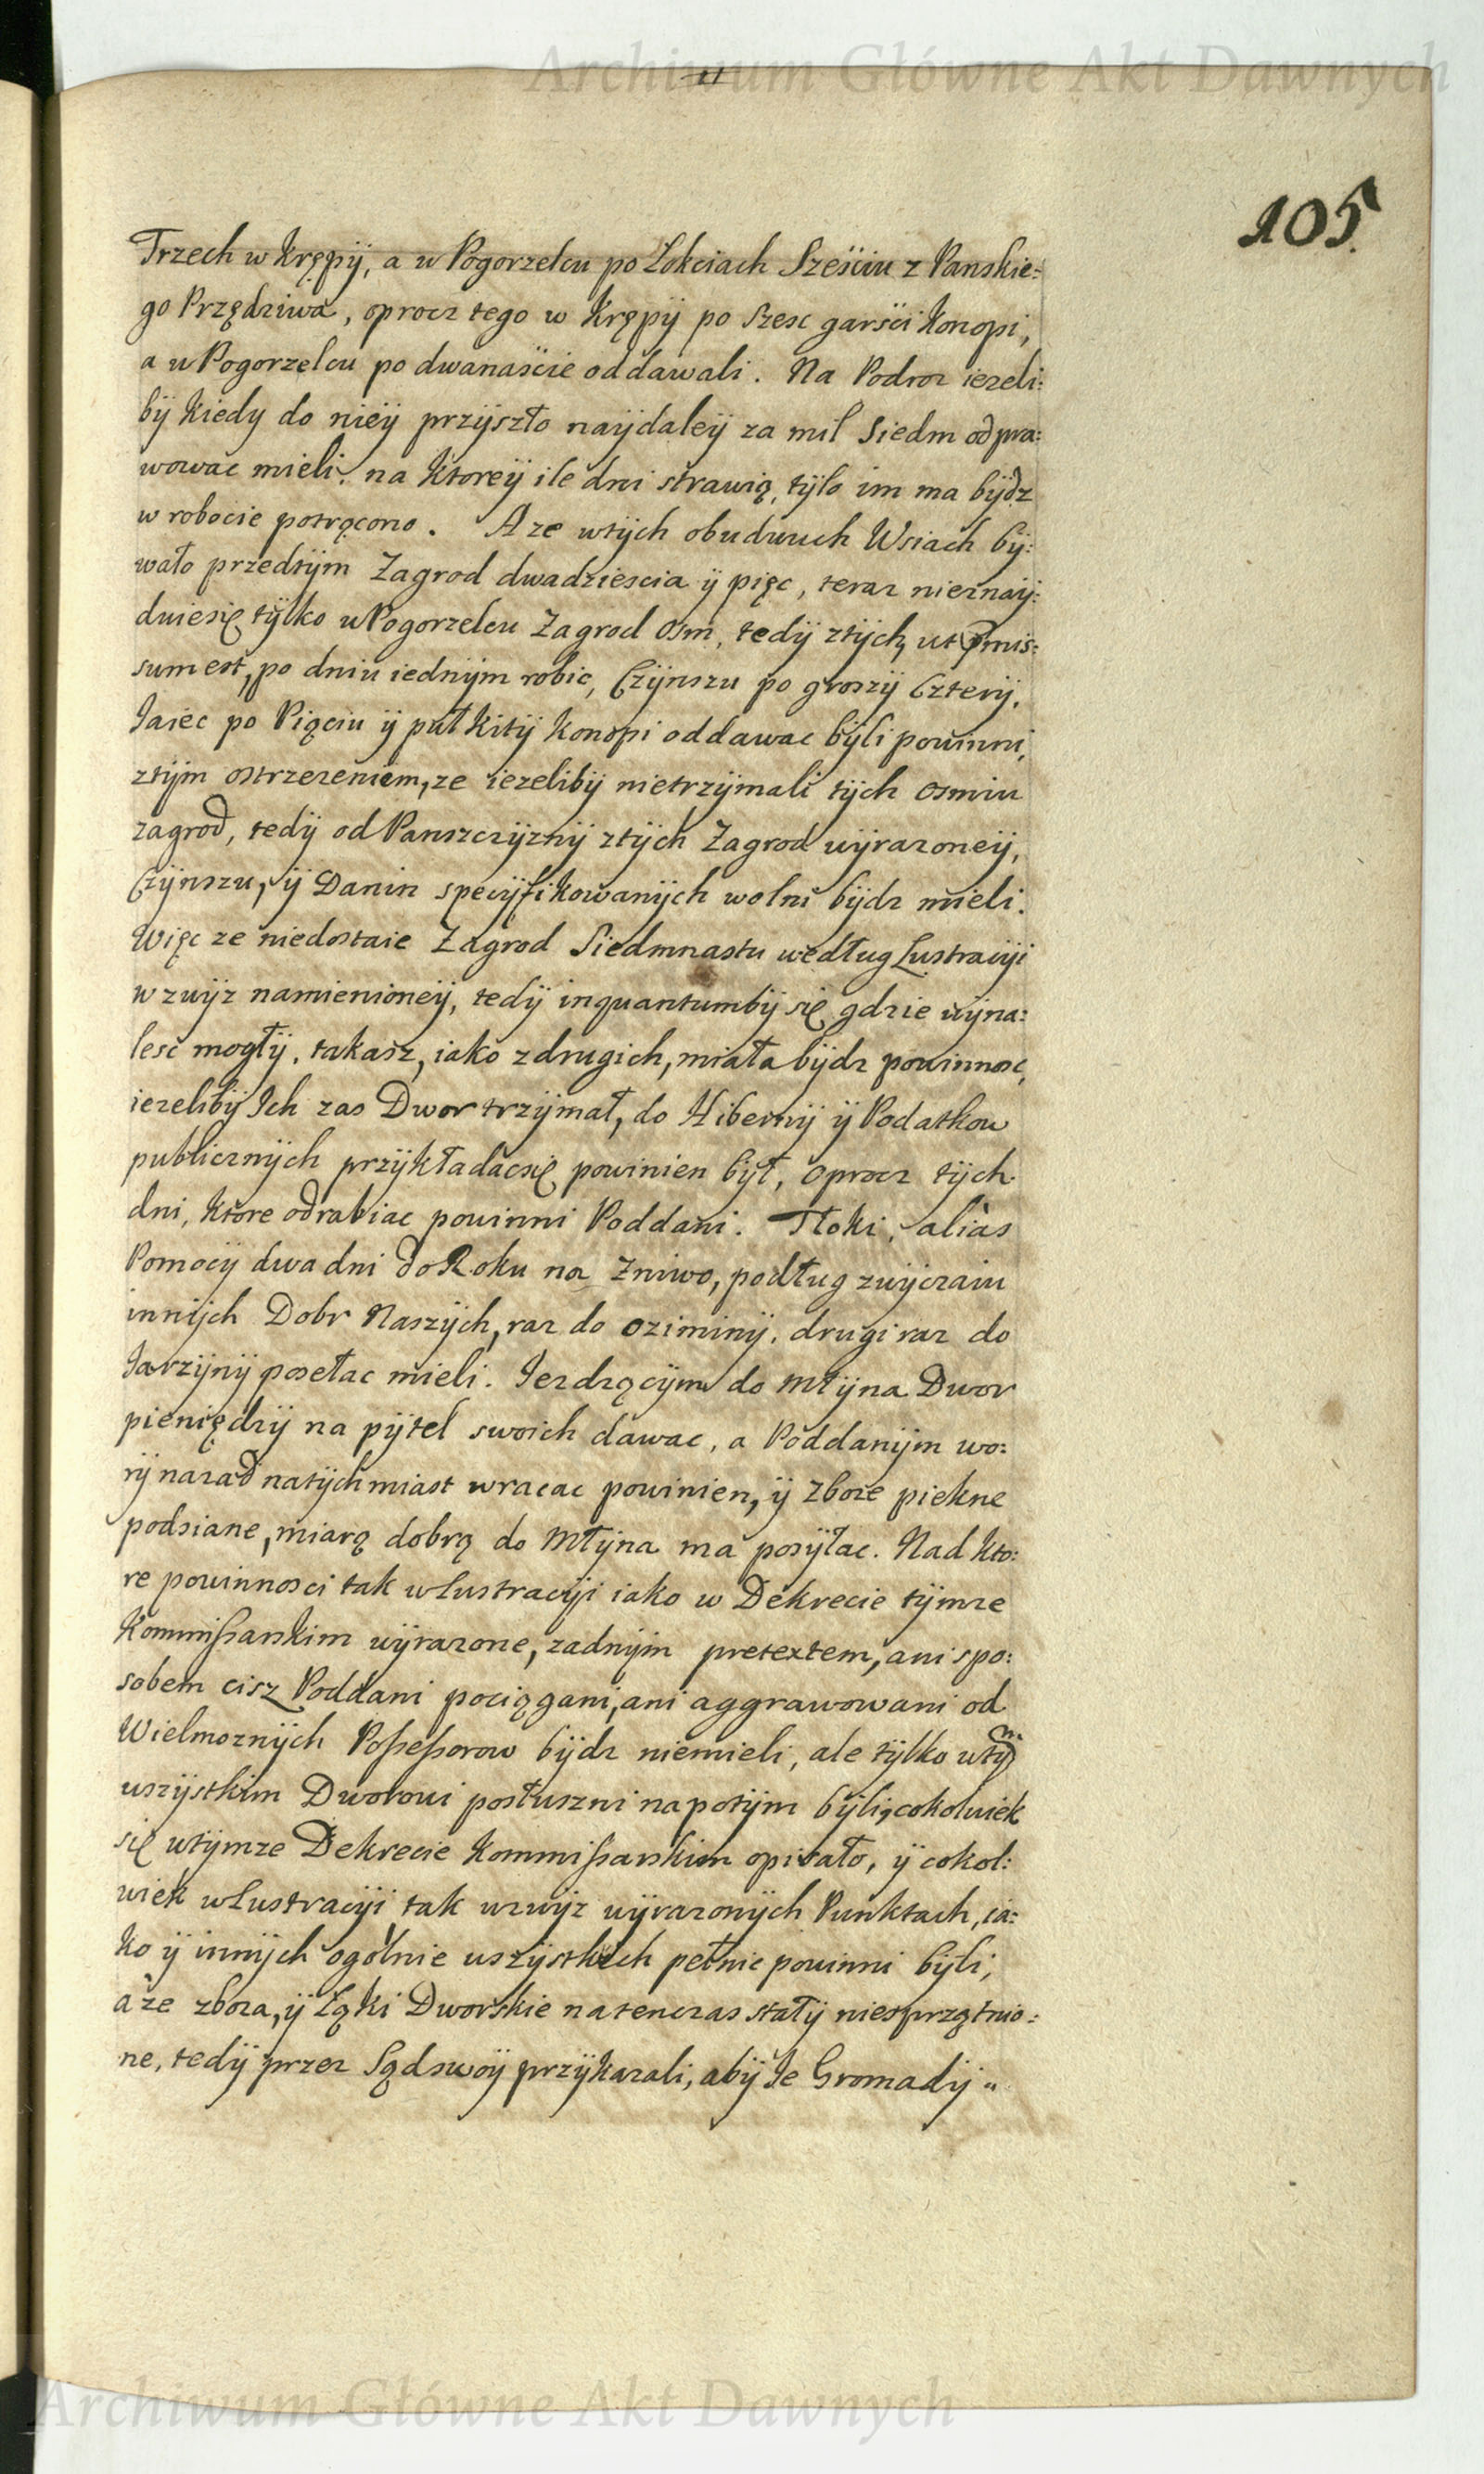 Archiwum Główne Akt Dawnych
105.
Trzech w Krępÿ, a w Pogorzelcu po Łokciach Sześciu z Panskie:
go Przędziwa, oprocz tego w Krępÿ po szesc garści Konopi,
a w Pogorzelcu po dwanaście oddawali. Na Podroz iezeli:
bÿ kiedy do nieÿ przÿszło naÿdaleÿ za mil Siedm odpra:
wowac mieli, na ktoreÿ ile dni strawią, tÿlo im ma bÿdz
w robocie potrącono. A ze wtÿch obudwuch Wsiach bÿ:
wało przedtÿm Zagrod dwadziescia ÿ pięc, teraz nieznaÿ:
duiesię tÿlko w Pogorzelcu Zagrod osm, tedÿ ztÿch, ut pmis:
sum est, po dniu iednÿm robic, Czÿnszu po groszÿ Czterÿ,
Jaiec po Pięciu ÿ puł kitÿ Konopi oddawac bÿli powinni,
ztÿm ostrzezeniem, ze iezelibÿ nietrzÿmali tÿch osmiu
zagrod, tedÿ od Panszczÿznÿ ztÿch Zagrod wÿrazoneÿ,
Czÿnszu, ÿ Danin specÿfikowanÿch wolni bÿdz mieli.
Więc ze niedostaie Zagrod Siedmnastu według Lustracÿi
wzwÿz namienioneÿ, tedÿ inquantumbÿ się gdzie wÿna:
lesc mogłÿ, takasz, iako z drugich, miała bÿdz powinnosc,
iezelibÿ Ich zas Dwor trzÿmał, do Hibernÿ ÿ Podatkow
publicznÿch przÿkładacsię powinien bÿł, oprocz tÿch
dni, ktore odrabiac powinni Poddani. Tłoki, alias
Pomocÿ dwa dni do Roku na Zniwo, podług zwÿczaiu
innÿch Dobr Naszÿch, raz do oziminÿ, drugi raz do
Jarzÿnÿ posełac mieli. Jezdzącÿm do Młÿna Dwor
pieniędzÿ na pÿtel swoich dawac, a Poddanÿm wo:
rÿ nazad natÿchmiast wracac powinien, ÿ Zboze piekne
podsiane, miarą dobrą do Młÿna ma posÿłac. Nad kto:
re powinnosci tak w Lustracÿi iako w Dekrecie tÿmze
Kommißarskim wÿrazone, zadnÿm pretextem, ani spo:
sobem cisz Poddani pociągani, ani aggrawowani od
Wielmoznÿch Poßeßorow bÿdz niemieli, ale tÿlko wtÿm
wszÿstkim Dworowi posłuszni napotÿm bÿli, cokolwiek
się wtÿmze Dekrecie Kommißarskim opisało, ÿ cokol:
wiek w Lustracÿi tak wzwÿz wÿrazonÿch Punktach, ia:
ko ÿ innÿch ogólnie wszÿstkich pełnic powinni bÿli,
a ze zboza, ÿ Łąki Dworskie natenczas stałÿ niesprzątnio:
ne, tedÿ przez Sąd swoÿ przÿkazali, abÿ Je Gromadÿ
Archiwum Główne Akt Dawnych